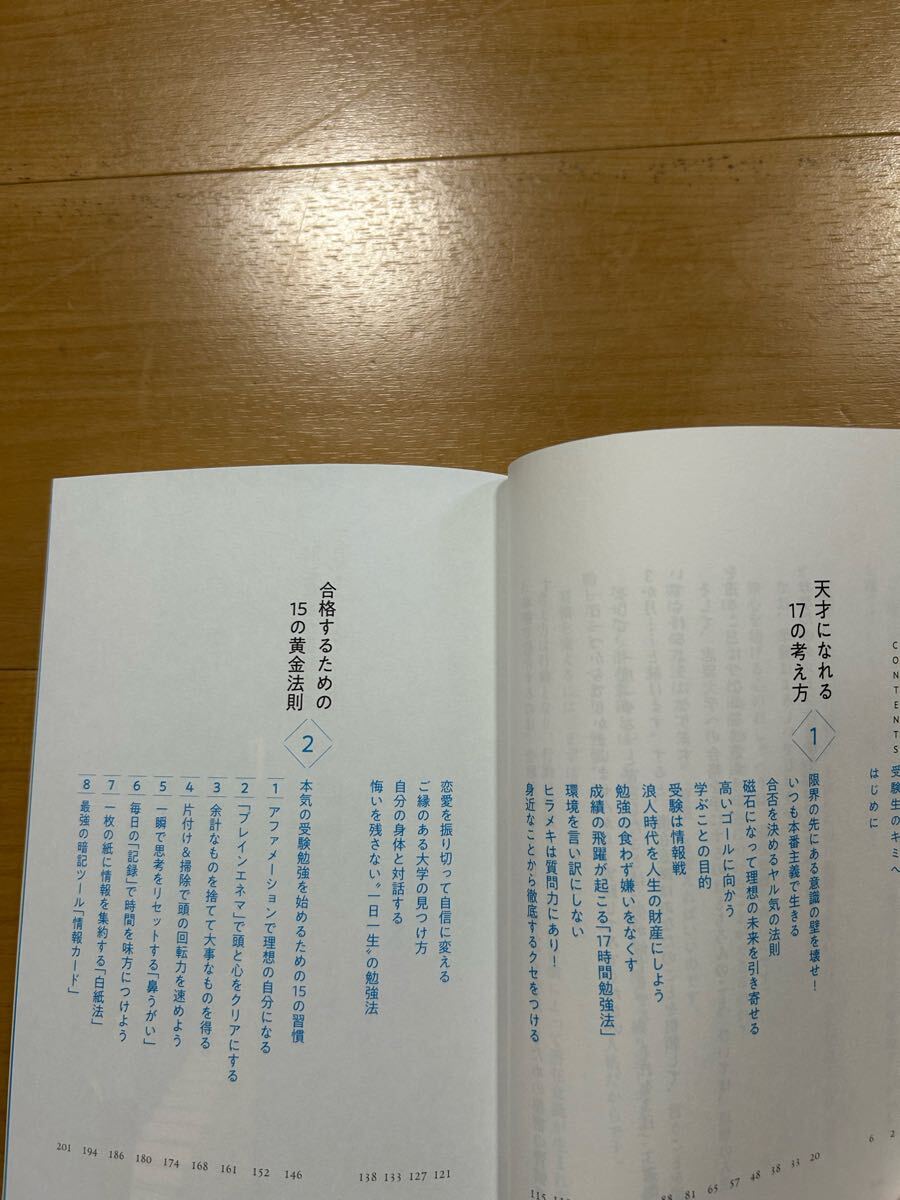 CONTENTS
受験生のキミへ
2
はじめに
6
天才になれる
17の考え方
1
限界の先にある意識の壁を壊せ!
20
いつも本番主義で生きる
33
合否を決めるヤル気の法則
38
磁石になって理想の未来を引き寄せる
48
高いゴールに向かう
57
学ぶことの目的
65
受験は情報戦
81
浪人時代を人生の財産にしよう
88
勉強の食わず嫌いをなくす
成績の飛躍が起こる「17時間勉強法」
環境を言い訳にしない
ヒラメキは質問力にあり!
身近なことから徹底するクセをつける
115
恋愛を振り切って自信に変える
121
ご縁のある大学の見つけ方
127
自分の身体と対話する
133
悔いを残さない“一日一生”の勉強法
138
合格するための
15の黄金法則
2
本気の受験勉強を始めるための15の習慣
146
1 アファメーションで理想の自分になる
152
2 「ブレインエネマ」で頭と心をクリアにする
161
3 余計なものを捨てて大事なものを得る
168
4 片付け&掃除で頭の回転力を速めよう
174
5 一瞬で思考をリセットする「鼻うがい」
180
6 毎日の「記録」で時間を味方につけよう
186
7 一枚の紙に情報を集約する「白紙法」
194
8 最強の暗記ツール「情報カード」
201